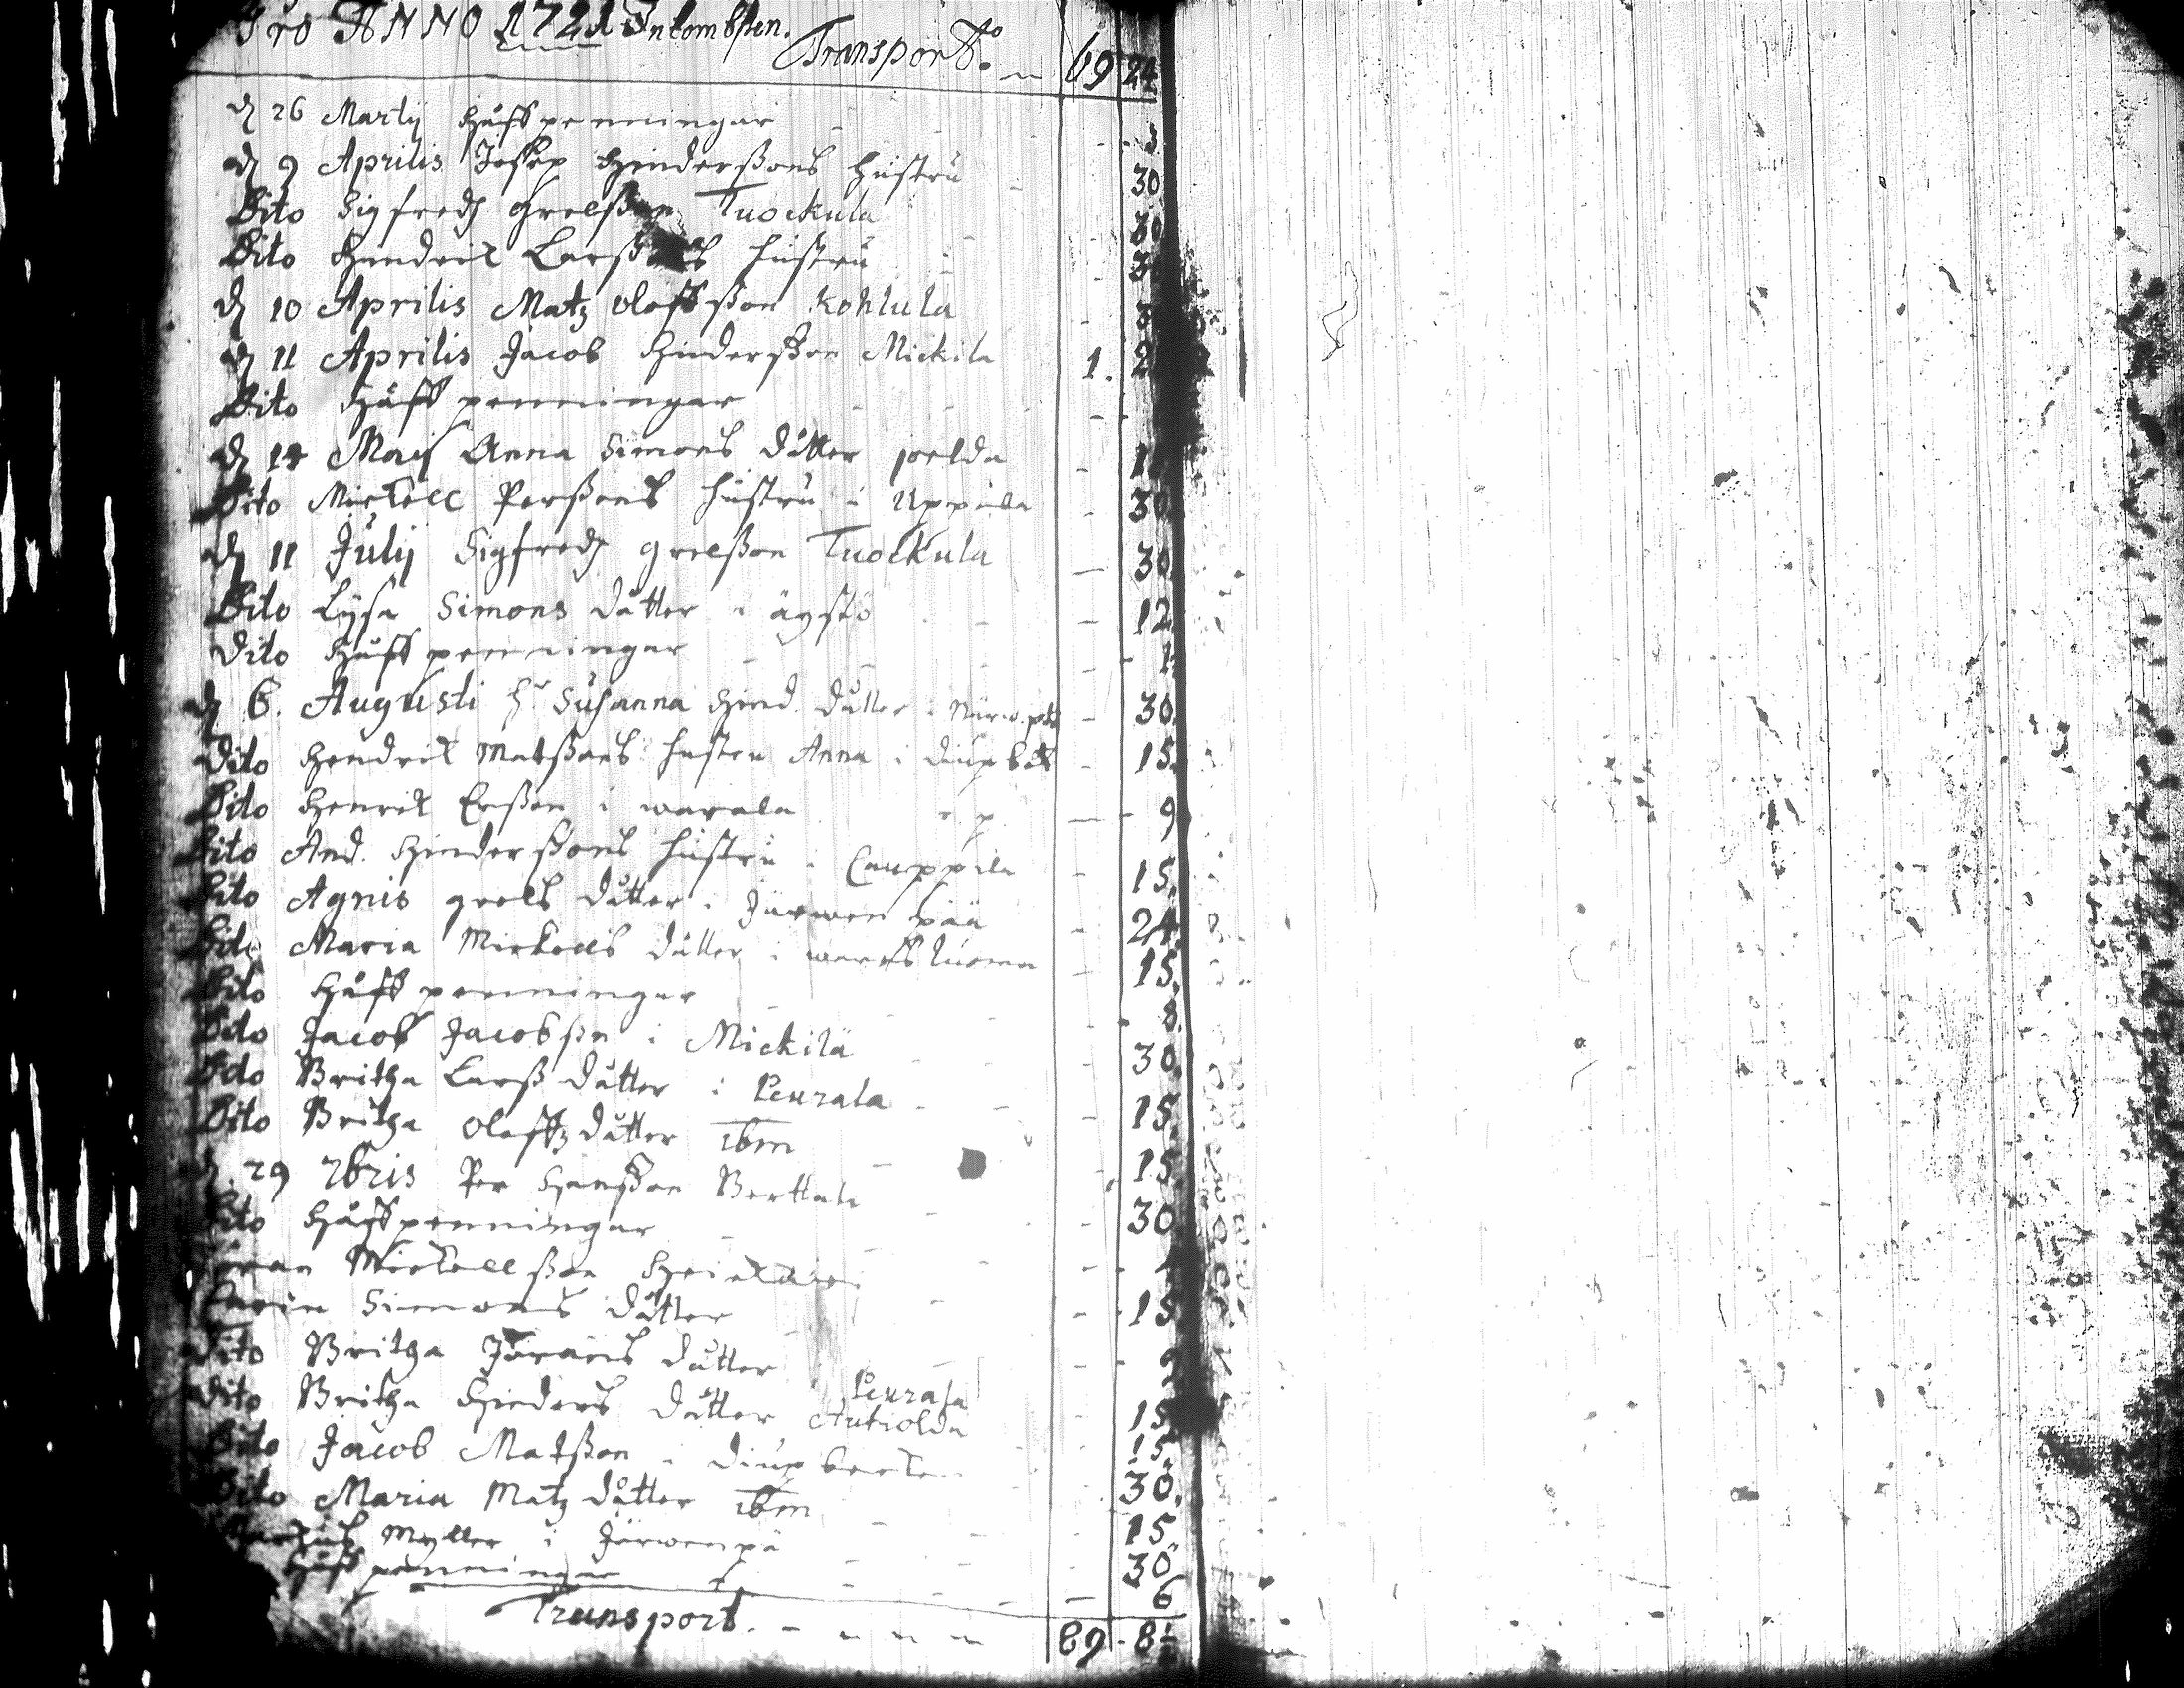 Pro ANNO 1721 Inkombsten.
Transport. 69 24
d 26 Martij håffpenningar - - 3
d 9 Aprilis Josep Hinderßons hustru - 30
Dito Sigfredh Grelßon Tuockula - 30
Dito Hendrik Larßons hustru - 30
d 10 Aprilis Matz Oloffßon Kohlula - 3
d 11 Aprilis Jacob Hinderßon Mickila 1. 2
Dito håffpenningar - -
d 14 Maij Anna Simons dåtter pelda - 1
Dito Mickell Perßons hustru i Uppala - 30
d 11 Julij Sigfredh Grelßon Tuockula - 30
Dito Lysa Simons dåtter i ägstö - 12
Dito håffpenningar - 1
d 6. Augusti H Susanna Hind. dåtter i - 30
Dito Hendrik Matßons hustru Anna i Diupbek - 15
Dito Henrik Erßon i warala - 9
Dito And. Hinderßons hustru i Cauppila - 15
Dito Agnis Grels dåtter i Järwenpää - 24
Dito Maria Mickells dåtter i - 15
Dito håffpenningar - 8
Dito Jacob Jacobßon i Mickilä 30
Dito Britha Larß dåtter i Peurala - 15
Dito Britha Oloffz dåtter ibm - 15
d. 29 7bris Per Hanßon Berttula - 30
Dito håffpenningar -
Mickellßon - 15
Simons dåtter - 2
Dito Britha Jörans dåtter Peurala 15
Dito Britha Hinders dåtter Antiolda 15
Dito Jacob Matßon i Diup 30
Dito Maria Matz dåtter ibm 15
Myller i Järwenpä 30
håffpenningar - 6
Transport. - - - 89 - 8½